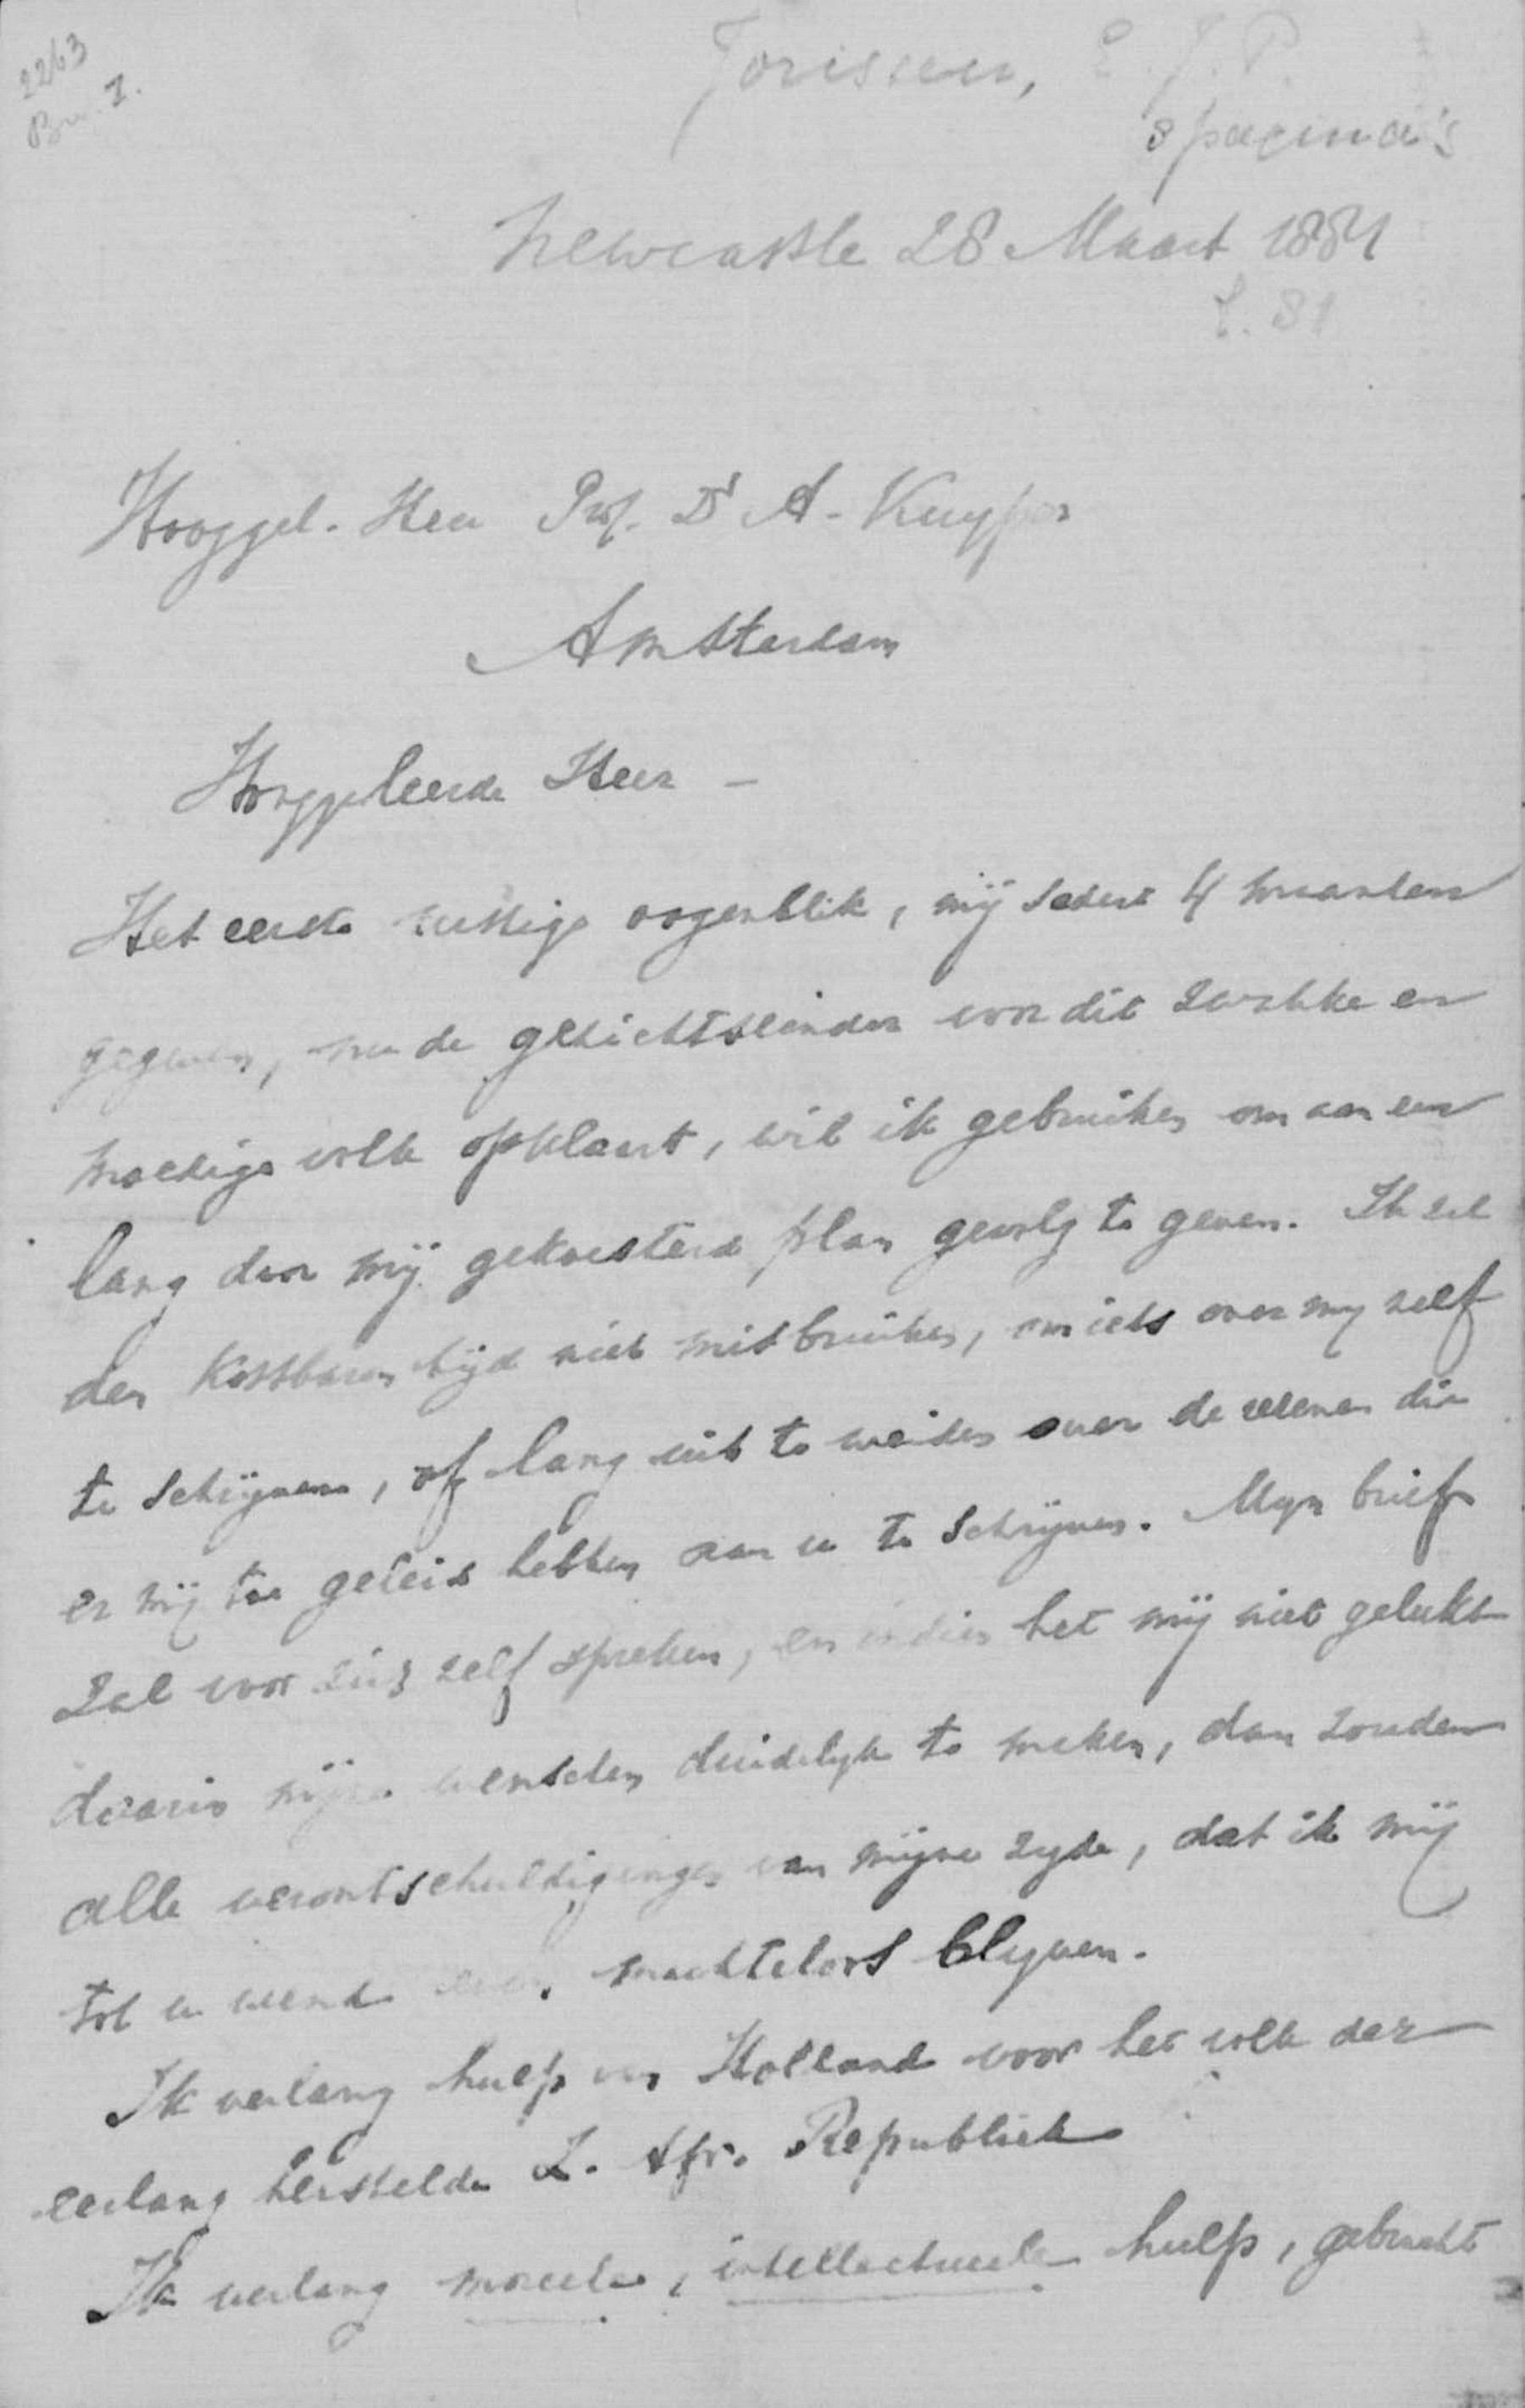 2263
Br. I.
Jorissen, E. J. P.
8 pagina's
Newcastle 28 Maart 1881
Hooggel. Heer Prof. Dr A. Kuyper
Amsterdam
Hooggeleerde Heer —
Het eerste rustige oogenblik, mij sedert 4 maanden
gegeven, nu de gezichtseinder voor dit zwakke en
moedige volk opklaart, wil ik gebruiken om aan een
lang door mij gekoesterd plan gevolg te geven. Ik zal
den kostbaren tijd niet misbruiken, om iets over my zelf
te schrijven, of lang uit te weiden over de redenen die
er mij toe geleid hebben aan u te schrijven. Myn brief
zal voor zich zelf spreken, en indien het mij niet gelukt
daarin mijne wenschen duidelyk te maken, dan zouden
alle verontschuldigingen van mijne zyde, dat ik mij
tot u wend machteloos blyven.
Ik verlang hulp van Holland voor het volk der
eerlang herstelde Z. Afr. Republiek
Ik verlang moreele, intellectueele hulp, gebracht